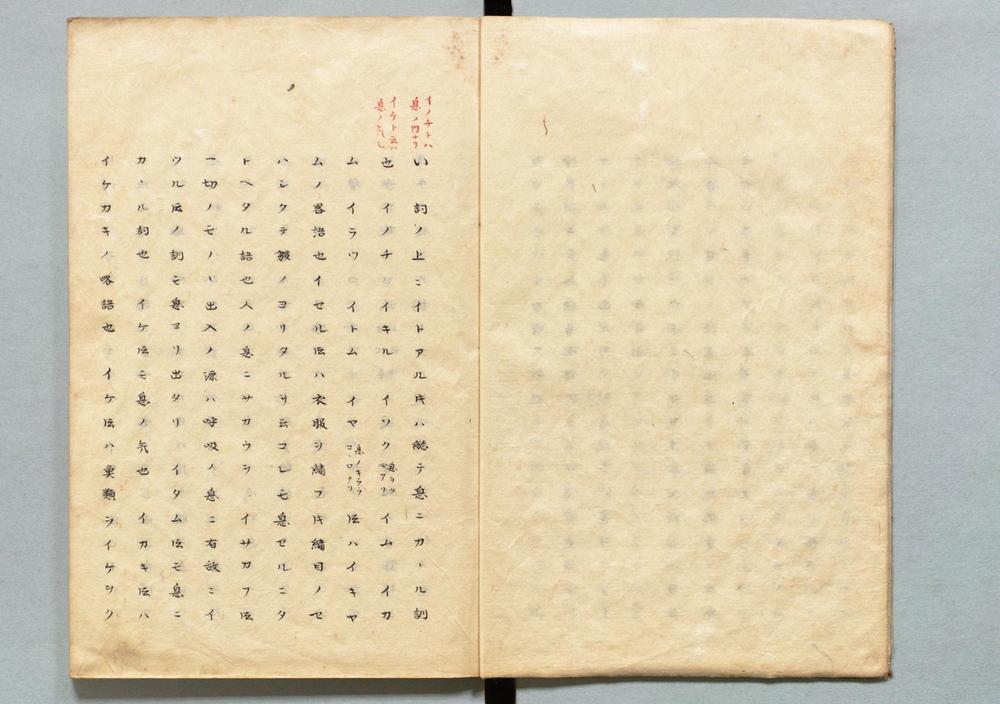 イノチトハ
息ノ内ナリ
イケト云ハ
息ノ気也
い 詞ノ上ニイトアル㐧ハ総テ息ニカヽル訓
也 イノチ イキル イツク 息ヲツクアリ イム イカ
ム イラツ イトム イヤ 息ノキラフコヽロナリ 伝ハイキヤ
ムノ畧語也イセル伝ハ衣服ヲ繍フ㐧繍目ノセ
ハシクテ皺ノヨリタルヲ云コレモ息セルニタ
トヘタル語也人ノ息ニサカウヲ イサカフ伝
一切ノモノヽ出入ノ源ハ呼吸ノ息ニ有故ニイ
ツル伝ノ訓モ息ヨリ出タリ イタム伝モ息ニ
カヽル詞也 イケ伝モ息ノ気也 イカキ伝ハ
イケカキノ略語也 イケ伝ハ菓類ヲイケシク